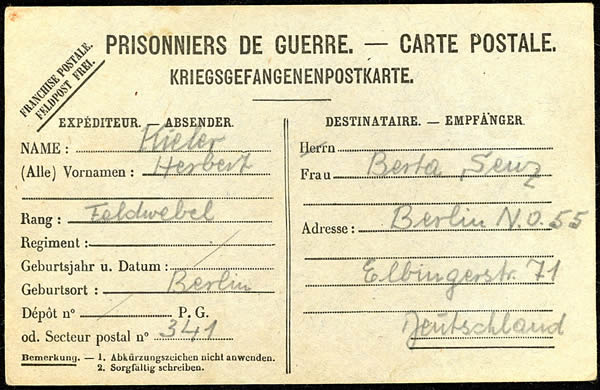 FRANCHISE POSTALE.
FELDPOST FREI.
PRISONNIERS DE GUERRE. — CARTE POSTALE.
KRIEGSGEFANGENENPOSTKARTE.
EXPÉDITEUR. — ABSENDER.
NAME : Hieler
(Alle) Vornamen : Herbert
Rang : Feldwebel
Regiment :
Geburtsjahr u. Datum :
Geburtsort : Berlin
Dépôt nº P. G.
od. Secteur postal nº 341
Bemerkung. — 1. Abkürzungszeichen nicht anwenden.
2. Sorgfältig schreiben.
DESTINATAIRE. — EMPFÄNGER
Herrn
Frau Berta Senz
Adresse : Berlin N.O. 55
Elbingerstr. 71
Deutschland